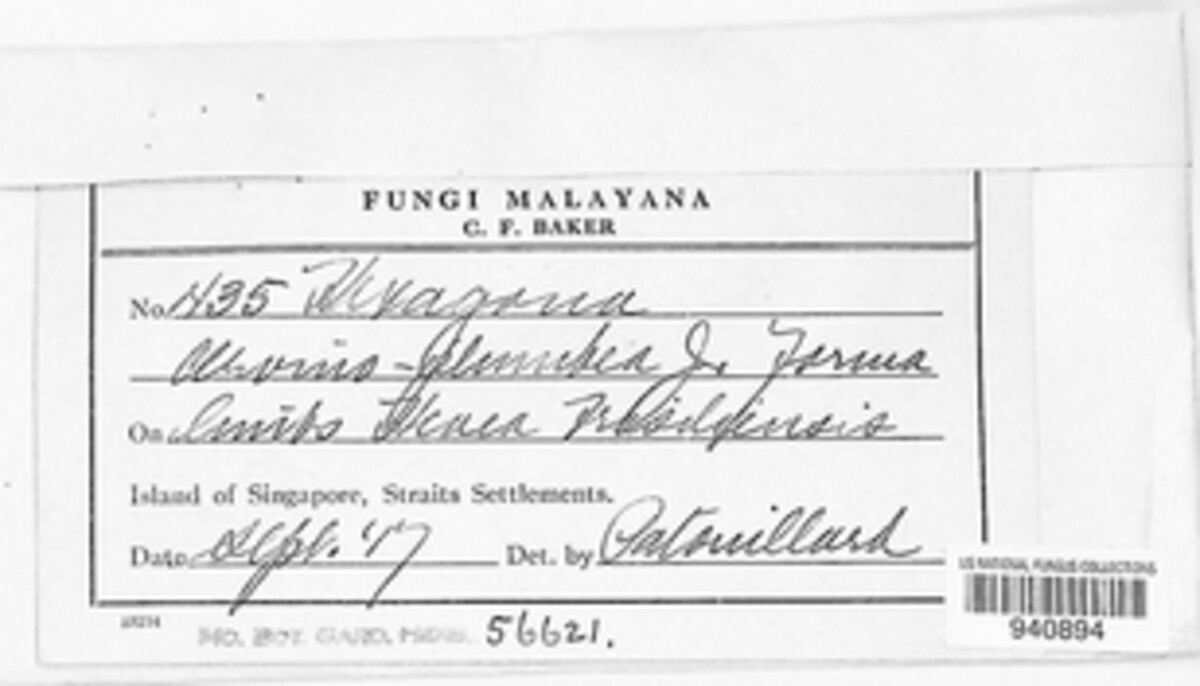 FUNGI MALAYANA
C. F. BAKER
No. 435 Hexagona
cervino-plumbea J. Forma
On Hevea Brasiliensis
Island of Singapore, Straits Settlements.
Date Sept. '17 Det. by Patouillard
MO. BOT. GARD. HERB. 56621.
US NATIONAL FUNGUS COLLECTIONS
940894